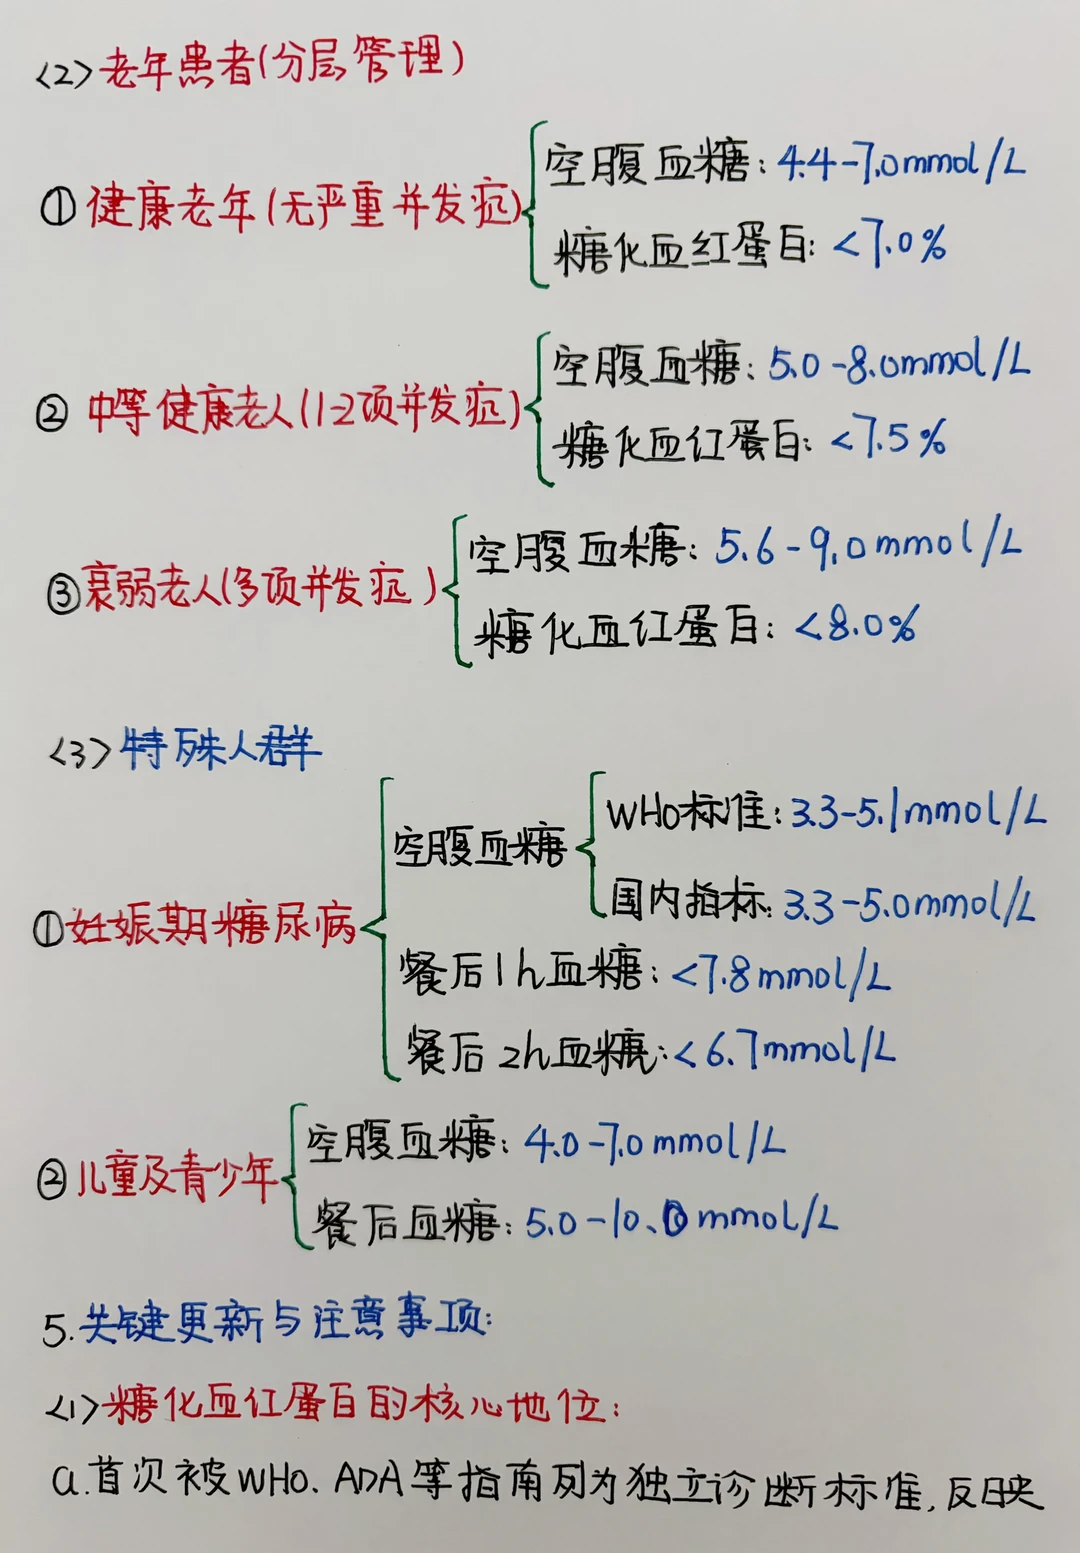 <2>老年患者(分层管理)
空腹血糖:4.4-7.0mmol/L
①健康老年(无严重并发症)
糖化血红蛋白:<7.0%
空腹血糖:5.0-8.0mmol/L
②中等健康老人(1-2项并发症)
糖化血红蛋白:<7.5%
空腹血糖:5.6-9.0mmol/L
③衰弱老人(多项并发症)
糖化血红蛋白:<8.0%
<3>特殊人群
WHO标准:3.3-5.1mmol/L
空腹血糖
国内指标:3.3-5.0mmol/L
①妊娠期糖尿病
餐后1h血糖:<7.8mmol/L
餐后2h血糖:<6.7mmol/L
空腹血糖:4.0-7.0mmol/L
②儿童及青少年
餐后血糖:5.0-10.0mmol/L
5.关键更新与注意事项:
<1>糖化血红蛋白的核心地位:
a.首次被WHO、ADA等指南列为独立诊断标准,反映